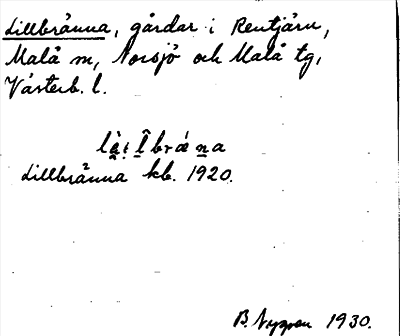 Lillbränna, gårdar i Rentjärn,
Malå sn, Norsjö och Malå tg,
Västerb. l.
Lillbränna kb. 1920.
B. Nygren 1930.